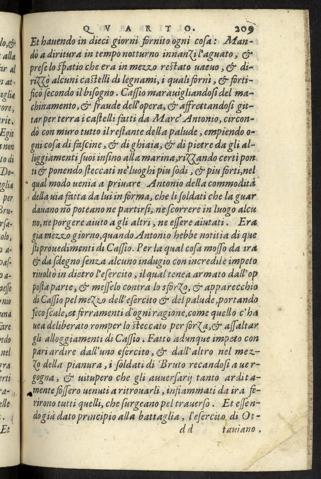 QVARTO. 209
Et hauendo in dieci giorni fornito ogni cosa: Man-
dò a diritura in tempo notturno innanzi l'aguato, &
prese lo spatio che era in mezzo restato vacuo, & di-
rizzò alcuni castelli di legnami, i quali fornì, & forti-
ficò secondo il bisogno. Cassio marauigliandosi del ma-
chinamento, & fraude dell'opera, & affrettandosi git-
tar per terra i castelli fatti da Marc'Antonio, circon-
dò con muro tutto il restante della palude, empiendo o-
gni cosa di fascine, & di ghiaia, & di pietre da gli al-
loggiamenti suoi insino alla marina, rizzando certi pon
ti & ponendo steccati ne luoghi piu sodi, & piu forti, nel
qual modo uenia a priuare Antonio della commodità
della via fatta da lui in forma, che li soldati che la guar
dauano nõ poteano ne partirsi, ne scorrere in luogo alcu
no, ne porgere aiuto a gli altri, ne essere aiutati. Era
gia mezzo giorno, quando Antonio hebbe notitia di que
sti prouedimenti di Cassio. Per la qual cosa mosso da ira
& da sdegno senza alcuno indugio con incredile impeto
riuolto in dietro l'esercito, il qual tenea armato dall'op
posta parte, & messelo contra lo sforzo, & apparecchio
di Cassio pel mezzo dell'esercito & del palude, portando
seco scale, et ferramenti d'ogni ragione, come quello c'ha
uea deliberato romper lo steccato per forza, & assaltar
gli alloggiamenti di Cassio. Fatto adunque impeto con
pari ardire dall'uno esercito, & dall'altro nel mez-
zo della pianura, i soldati di Bruto recandosi a ver-
gogna, & vitupero che gli auuersarij tanto ardita-
mente fossero venuti a ritrouarli, infiammati da ira fe-
rirono tutti quelli, che surgeano pel trauerso. Et essen-
do già dato principio alla battaglia, l'esercito di Ot-
dd tauiano.